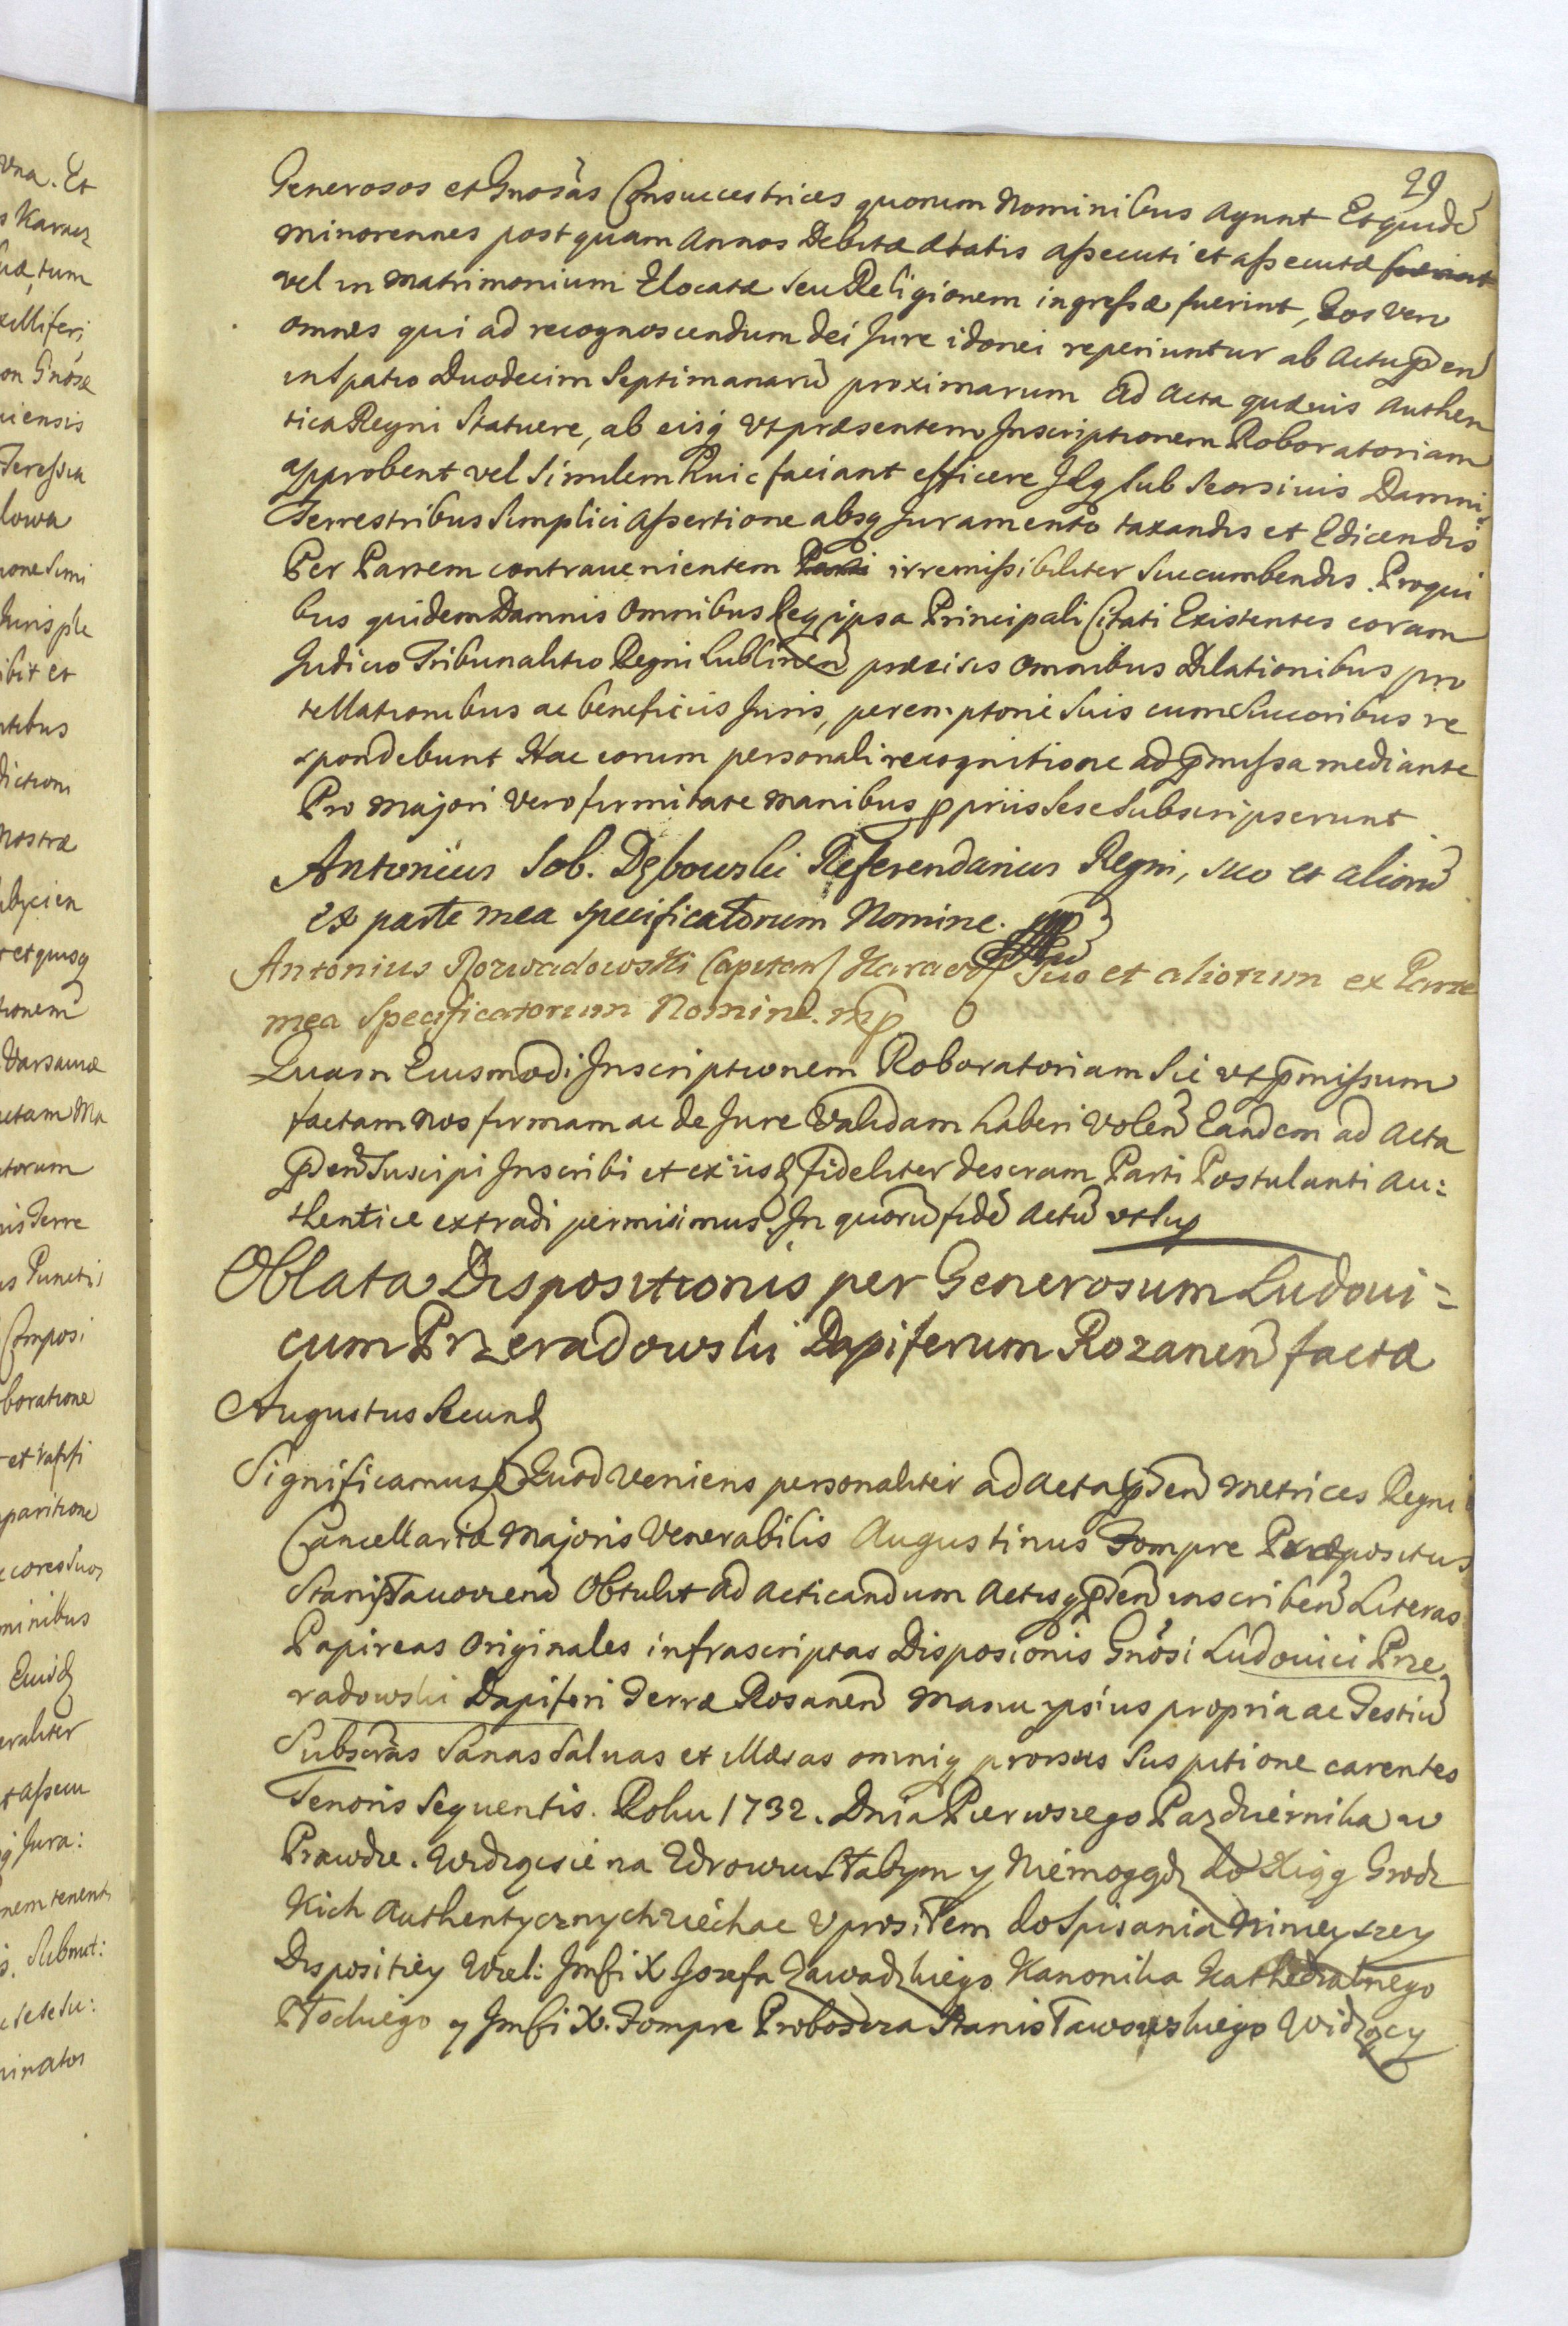 29
Generosos et Gnosas Consuccestrices quorum Nominibus Agunt Et quidē
minorennes post quam Annos Debitæ ætatis assecuti et assecutæ fuerint
vel in Matrimonium Elocatæ seu Religionem ingressæ fuerint, Eos vero
omnes qui ad recognoscendum dei Jure idonei reperiuntur ab Actu p̄den̄
in Spatio Duodecim Septimanarū proximarum ad Acta quævis Authen
tica Regni Statuere, ab eisq̨ vt præsentem Inscriptionem Roboratoriam
approbent vel Similem huic faciant efficere Idq̨ sub Seorsivis Damnis
Terrestribus Simplici Assertione absq̨ Juramento taxandis et Edicendis
Per Partem contravenientem Parti irremissibiliter Succumbendis. Pro qui
bus quidem Damnis Omnibus Req̨ ipsa Principali Citati Existentes coram
Judicio Tribunalitio Regni Lublinen̄ præcisis Omnibus Dilationibus pro
tellationibus ac beneficiis Juris, peremptorie Suis cum Succoribus re
spondebunt Hac eorum personali recognitione ad p̄missa mediante
Pro Majori Vero firmitate Manibus p̱priis Sese Subscripserunt
Antonius Seb. Dębowski Referendarius Regni, suo et aliorū
ex parte mea specificatorum Nomine. mp
Antonius Rozwadowski Capitan Karaer Suo et aliorum ex Parte
mea Specificatorum Nomine. mp
Quam Eiusmodi Inscriptionem Roboratoriam Sic vt p̄missum
factam Nos firmam ac de Jure Validam haberi volen̄ Eandem ad Acta
p̄den̄ Suscipi Inscribi et ex iisd̨ Fideliter descram Parti Postulanti Au:
thentice extradi permisimus. In quorū fidē Actū vt Sup
Oblata Dispositionis per Generosum Ludovi=
cum Przeradowski Dapiferum Rozanen̄ factæ
Augustus Secund̨
Significamus Quod Veniens personaliter ad Acta p̄den̄ Metrices Regni
Cancellariæ Majoris Venerabilis Augustinus Tompre Præpositus
Stanisławovien̄ Obtulit ad Acticandum Actisq̨ p̄den̄ inscriben̄ Literas
Papireas Originales infrascriptas Disposionis Gnosi Ludovici Prze
radowski Dapiferi Terræ Rosanen̄ Manu ypsius propria ac Testiū
Subscras Sanas Salvas et illæsas omniq̨ prorsus Suspitione carentes
Tenoris Sequentis. Roku 1732. Dnia Pierwszego Pazdziernika w
Prawdzie. Widząc sie na Zdrowiu Słabym y Niemogąc do Xiąg Grodz
kich Authentycznych ziechac Uprosiłem do Spisania Ninieyszey
Dispositiey Wiel: Jmści X Jozefa Zawadzkiego Kanonika Kathedralnego
Płockiego y Jmści X. Tompre Proboszcza Stanisławowskiego Widzący